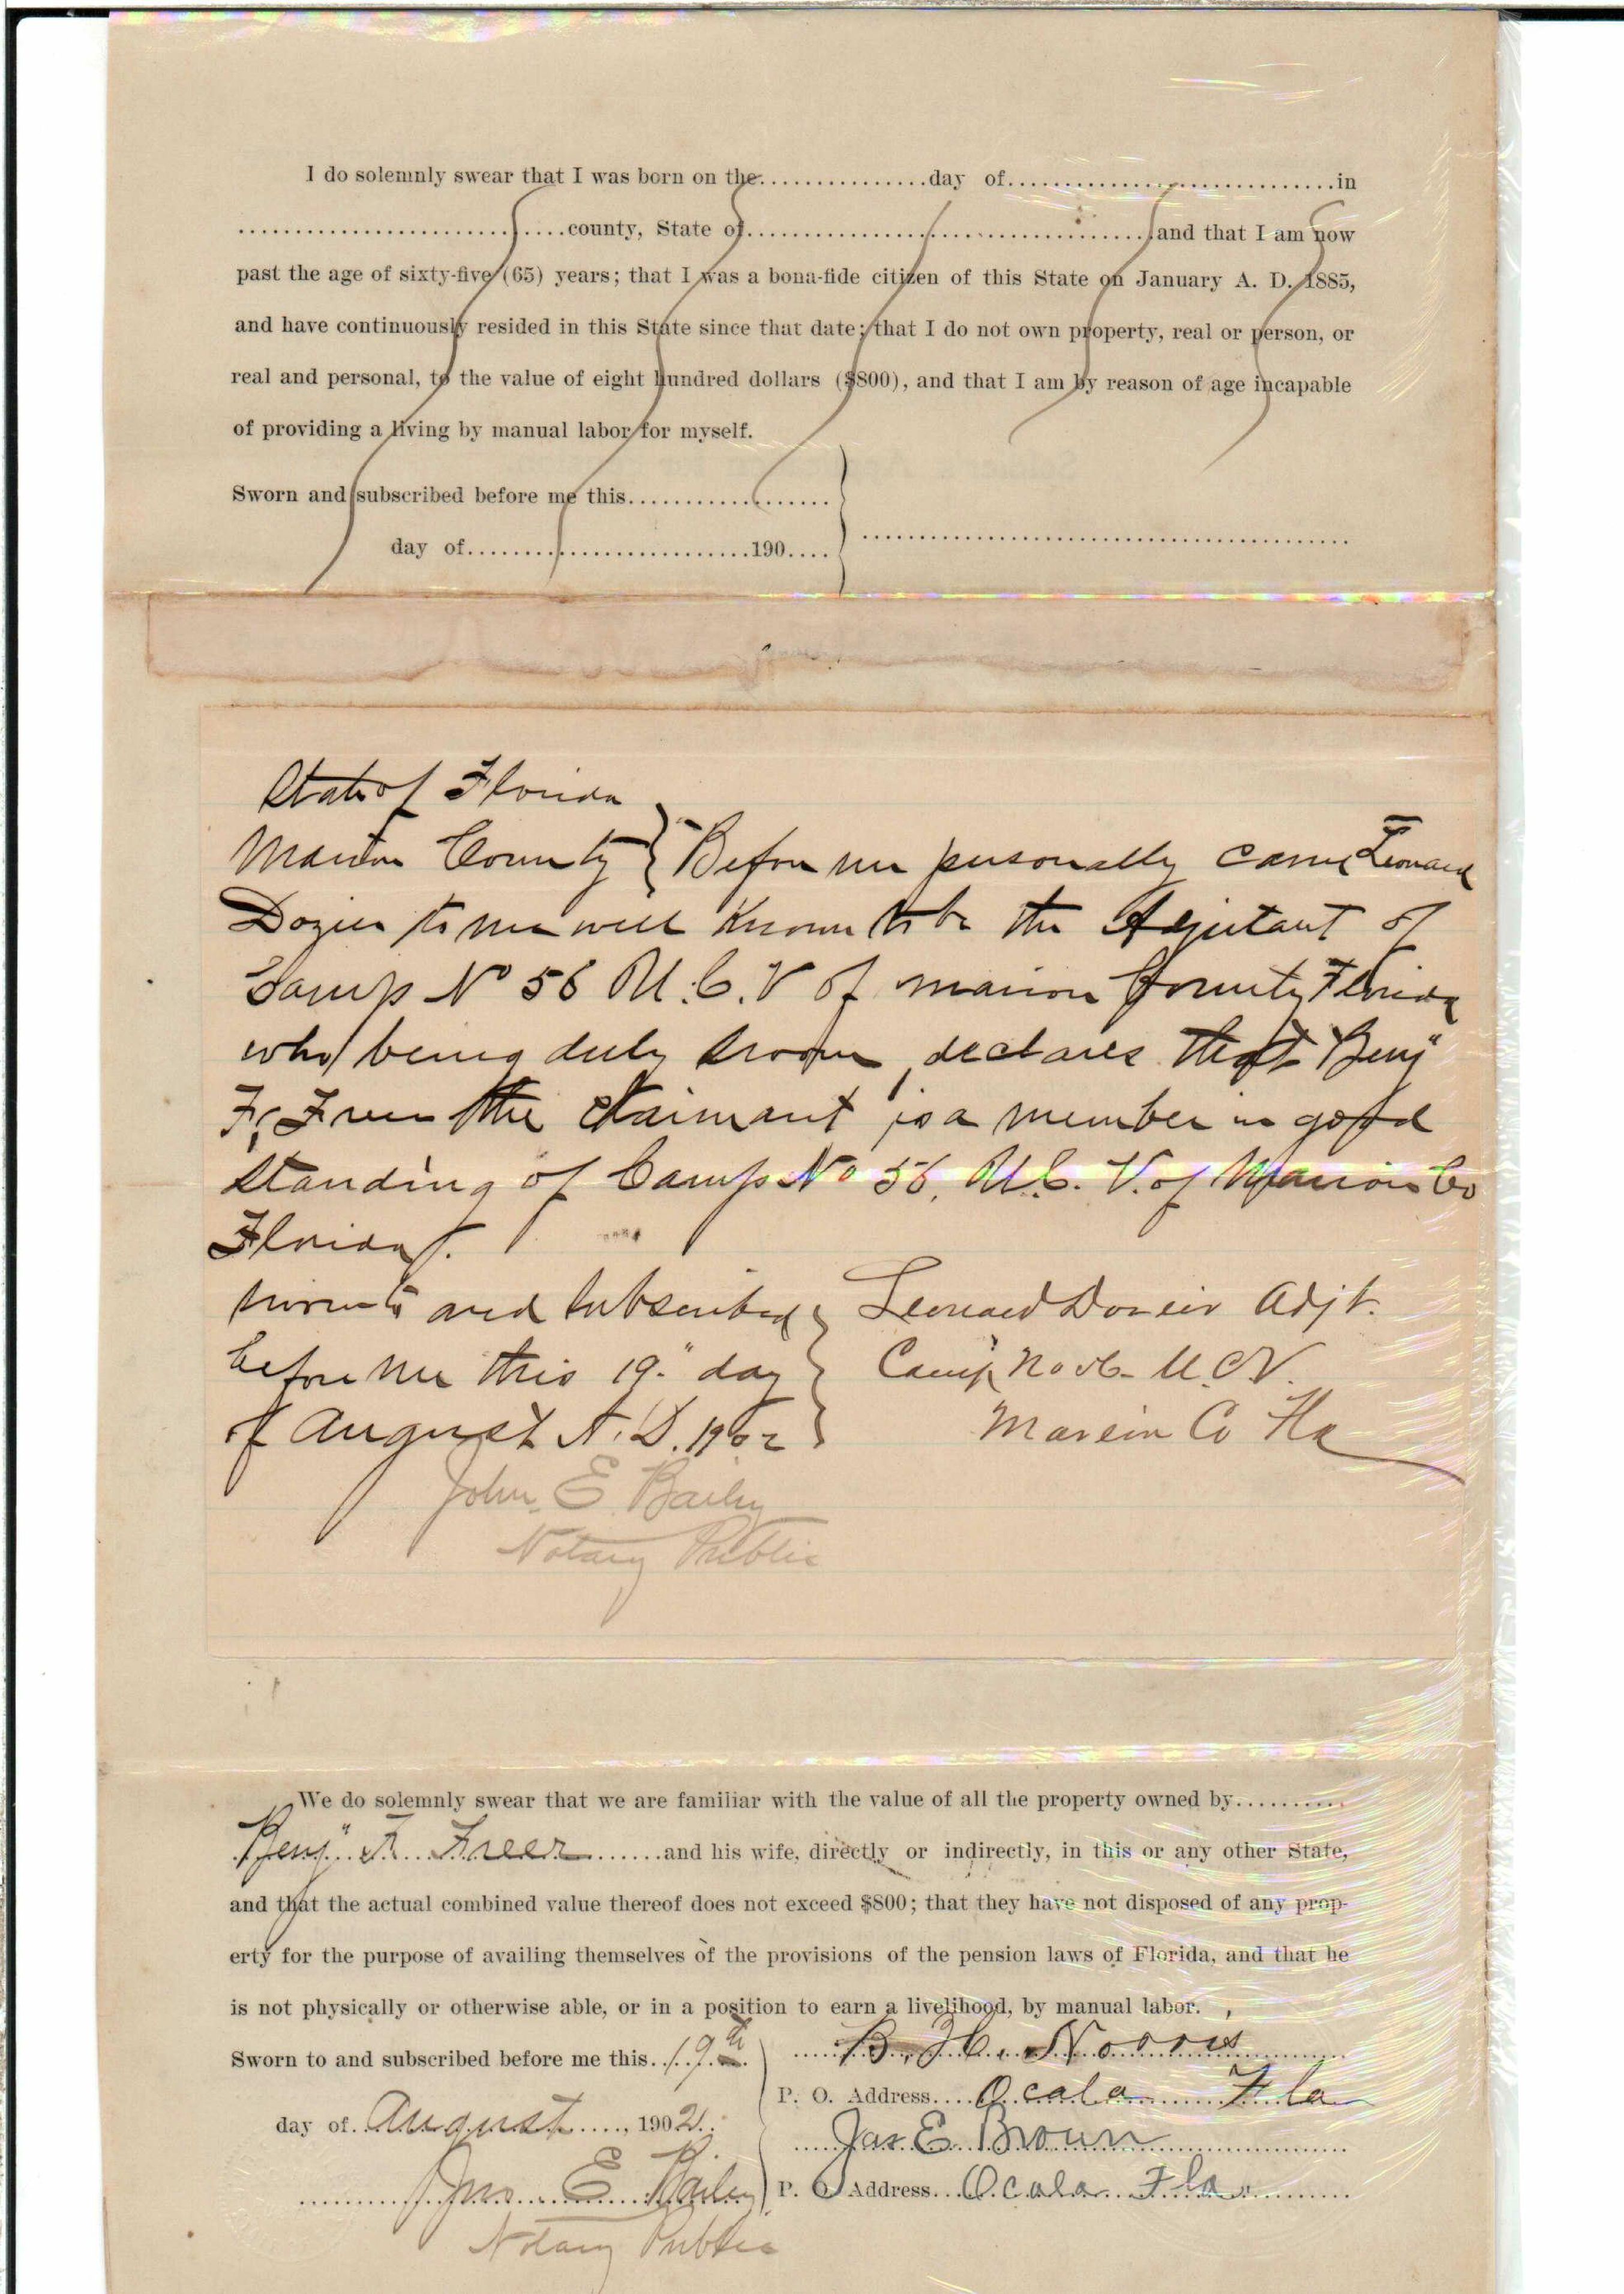 I do solemnly swear that I was born on the................day of................................in
.............................county, State of....................................and that I am now
past the age of sixty-five (65) years; that I was a bona-fide citizen of this State on January A. D. 1885,
and have continuously resided in this State since that date; that I do not own property, real or person, or
real and personal, to the value of eight hundred dollars ($800), and that I am by reason of age incapable
of providing a living by manual labor for myself.
Sworn and subscribed before me this..................
day of.........................190....
State of Florida
Marion County } Before me personally came Leonard
Dozier to me well known to be the Adjutant of
Camp No 56 U.C.V of Marion County Florida
who being duly sworn, declares that Benj"
F, Freer the claimant is a member in good
standing of Camp No 56, U.C.V. of Marion Co
Florida.
Sworn to and subscribed } Leonard Dozier Adjt.
before me this 19" day } Camp No 56- U.C.V.
of August A.D. 1902 } Marion Co Fla
John E Bailey
Notary Public
We do solemnly swear that we are familiar with the value of all the property owned by..........
Benj" F. Freer.......and his wife, directly or indirectly, in this or any other State,
and that the actual combined value thereof does not exceed $800; that they have not disposed of any prop-
erty for the purpose of availing themselves of the provisions of the pension laws of Florida, and that he
is not physically or otherwise able, or in a position to earn a livelihood, by manual labor.
Sworn to and subscribed before me this..19th. B. H. Norris
P. O. Address....Ocala Fla
day of..August....., 1902.. Jas E Brown
Jno E Bailey P. O Address...Ocala Fla.
Notary Public